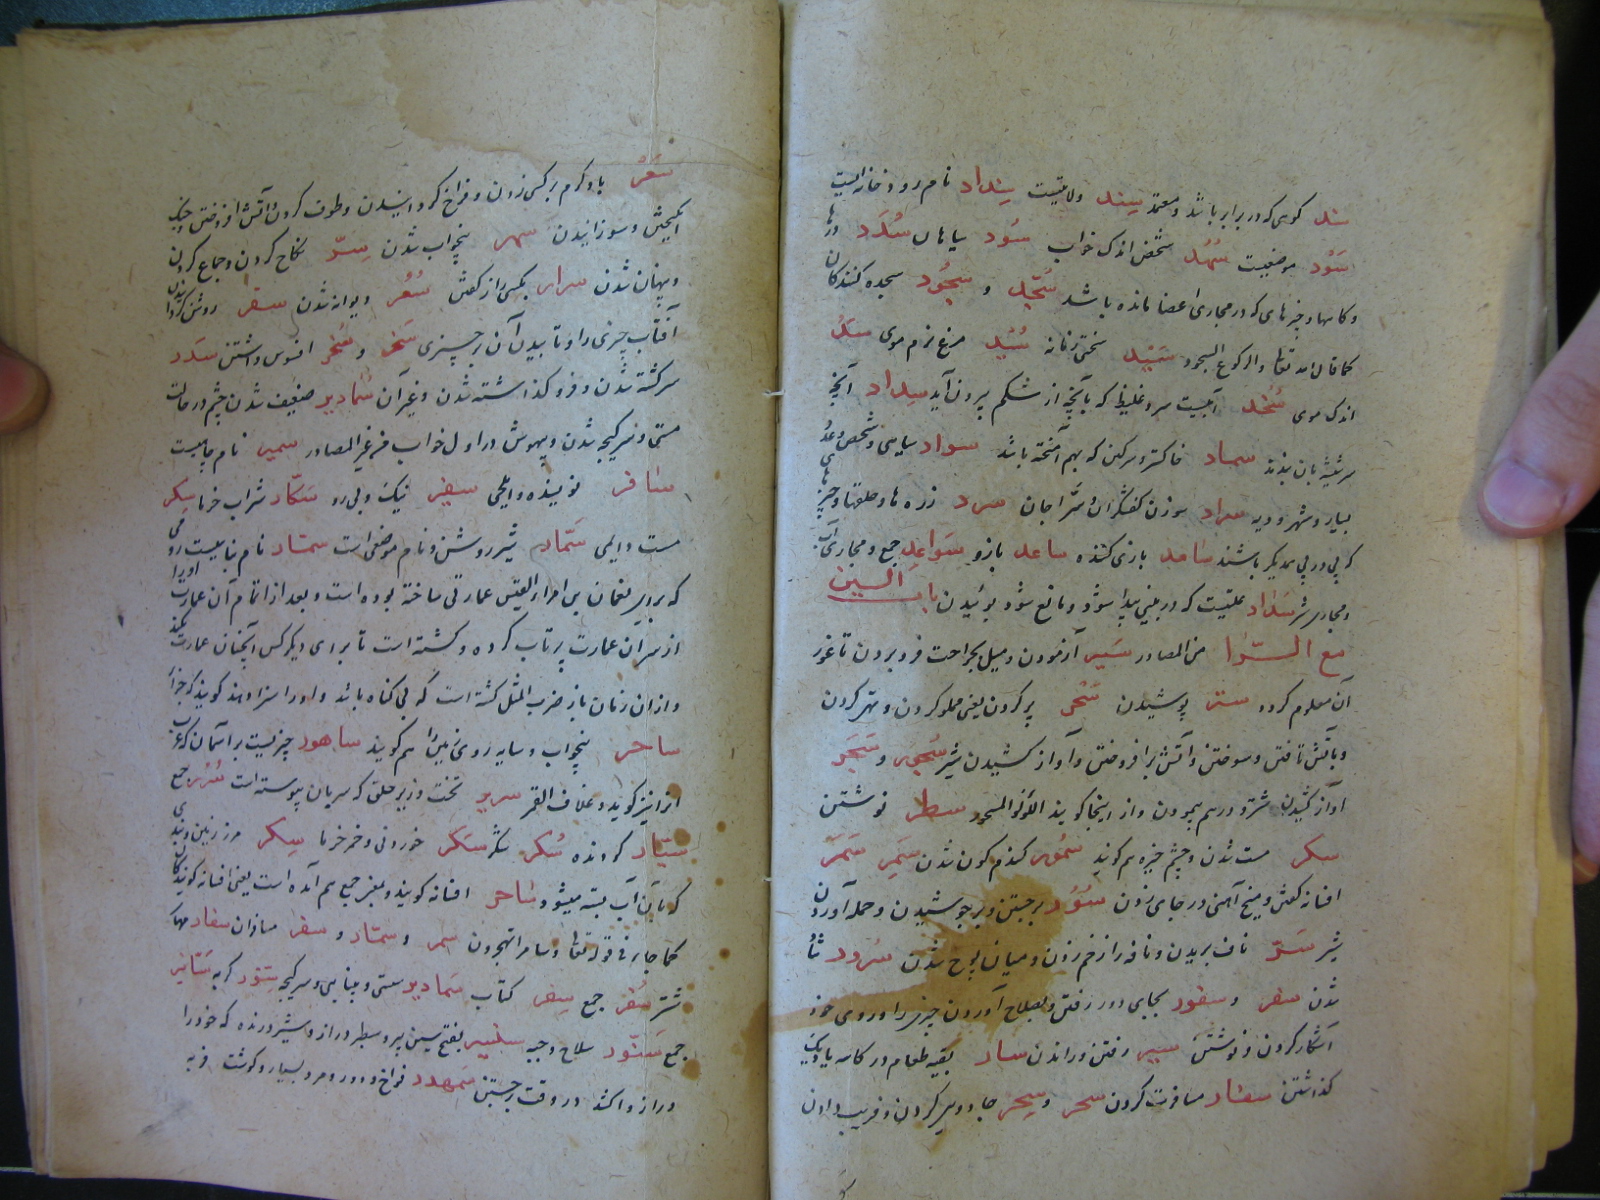 سَند کوهی که در برابر باشد و معتمد سِند ولایتیست سِنداد نام رودخانه ایست
سَوْد موضعیست سُهُد شخص اندک خواب سُود سیاهان سُدَد درها
و کاسها و چیزهای که در مجاری اعضا مانده باشد سُجَّد و سُجُود سجده کنندگان
کما قال الله تعا والرکوع السجود سَبَد سختی زمانه سُبَد مرغ نرم موی سَبَد
اندک موی سُخْد آبیست سرد غلیظ که با بچه از شکم بیرون آید سِداد آنچه
سر شیشه بان بندند سماد خاکستر و سرکین که بهم آمیخته باشد سواد سیاهی و شخص و عدد
بسیار و شهر و دیه سراد سوزن کفشگران و سرّاجان سرد زره ها و حلقها و چیزهای
که پی در پی یکدیگر باشند سامد بازی کننده ساعد بازو سَواعِد جمع و مجاری آب
و مجاری شیر سُداد علتیست که در بینی پیدا شود و مانع شود بوئیدن باب السین
مع الرّا من المصادر سَبر آزمودن و میل بجراحت فرو بردن تا غور
آن معلوم کردد ستر پوشیدن سَجْر پر کردن یعنی مملو کردن و تهی کردن
و بآتش تافتن و سوختن و آتش برافروختن و آواز کشیدن شتر سُجور و سَجَر
آواز کشیدن شتر و درهم پیمودن و از اینجا گویند اللؤلؤ المسجور سطر نوشتن
سکر مست شدن و چشم خیره هم کویند سُمور کندم کون شدن سَمر سَمَر
افسانه کفتن و میخ آهنی در جای زدن سُؤُر برجستن و برجوشیدن و حمله آوردن
شیر سَرّ ناف بریدن و نافه را زخم زدن و میان پوچ شدن سُرور شاد
شدن سفر و سفور بجای دور رفتن و بصلاح آوردن چیزی را و روی خود
آشکار کردن و نوشتن سیر رفتن و راندن سار بقیه طعام در کاسه یا دیک
کذاشتن سفار مسافرت کردن سحر و سِحر جادویی کردن و فریب دادن
سَعْر باد کرم بر کسی زدن و فراخ کردانیدن و طوف کردن و آتش افروختن و جنک
انکیختن و سوزانیدن سهر بیخواب شدن سِرّ نکاح کردن و جماع کردن
و پنهان شدن سرار بکسی راز کفتن سُعُر دیوانه شدن سقر روشن کردانیدن
آفتاب چیزی را و تابیدن آن بر چیزی سَخَر و سُخر افسوس داشتن سَدَر
سرکشته شدن و فرو کذاشته شدن و غیر آن سُمادیر ضعیف شدن چشم در حالت
مستی و سرکیجه شدن و بیهوش در اول خواب من غیر المصادر سمیر نام جاییست
سافر نویسنده و ایلچی سفیر نیک و پی رو سَکّار شراب خرما سکر
مست دایمی سَمّار شیر روشن و نام موضعی است سمنّار نام بناییست رومی
که برای نعمان بن امرء القیس عمارتی ساخته بوده است و بعد از اتمام آن عمارت او را
از سر آن عمارت پرتاب کرده و کشته است تا برای دیگر کس آنچنان عمارت نکند
و از آن زمان باز ضرب المثل کشته است که بی کناه باشد و او را سزا دهند کویند که جزاء
ساهر بیخواب و سایه روی زمین را هم کویند ساهور چیزیست بر آسمان که عرب
او را نیز کوید و غلاف القمر سریر تخت و زیر حلق که سر بآن پیوسته است سُرُر جمع
سیّار کردنده سُکر شکر سَکَر خوردنی و خمر خرما سِکر مرز زمین و بندی
که بآن آب بسته میشود سامر افسانه کویند و بمعنی جمع هم آمده است یعنی افسانه کویندکان
کما جاء فی قوله تعا سامرا تهجرون سمر و سمّار و سفر مسافران سفار مهار
شتر سُفُر جمع سِفر کتاب سَمادیر سستی و بینایی و سرکیجه سنّور کربه سَنانیر
جمع سَنَوّر سلاح و جبه سبطر بفتح سین پیر و سطبر دراز و شیر درنده که خود را
دراز واکشد در وقت برجستن سَمهدر فراخ و دور و مرد بسیار کوشت فربه